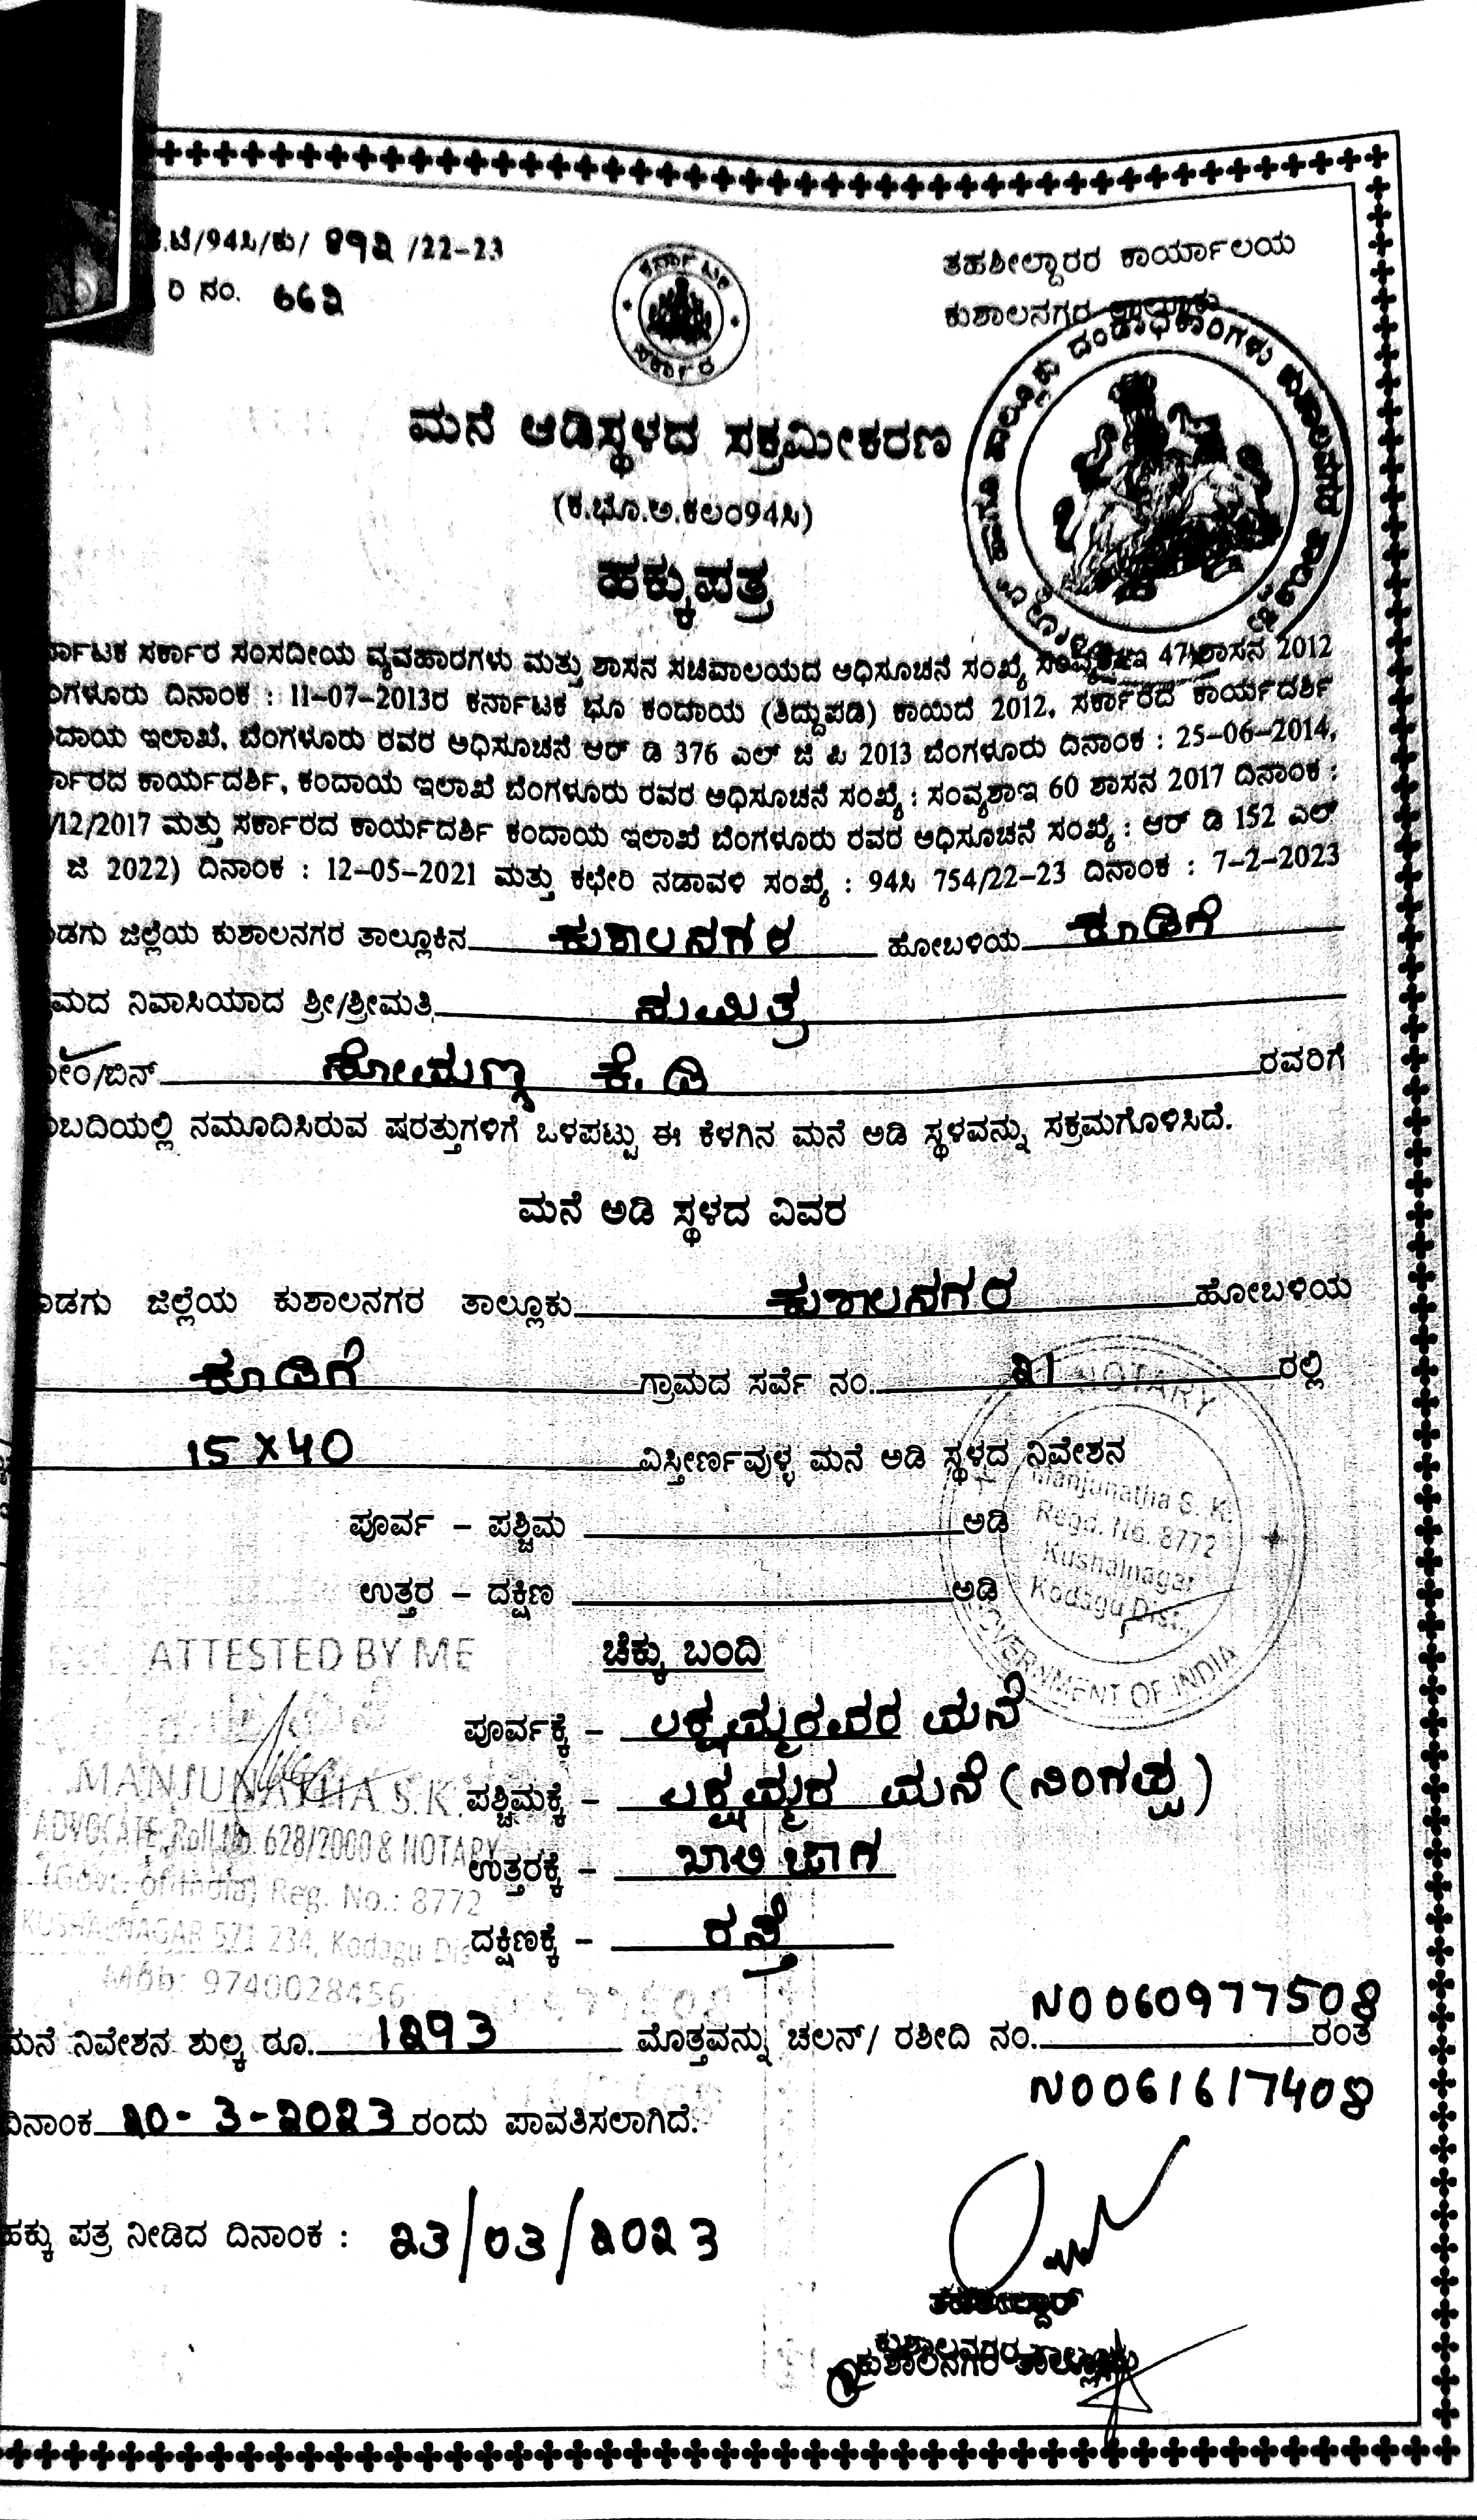 .ಟಿ/94ಸಿ/ಕು/ 892 /22-23
ರಿ ನಂ. 662
ತಹಶೀಲ್ದಾರರ ಕಾರ್ಯಾಲಯ
ಕುಶಾಲನಗರ ತಾಲ್ಲೂಕು
ಕರ್ನಾಟಕ
ಸರ್ಕಾರ
ಮನೆ ಅಡಿಸ್ಥಳದ ಸಕ್ರಮೀಕರಣ
(ಕ.ಭೂ.ಅ.ಕಲಂ94ಸಿ)
ಹಕ್ಕುಪತ್ರ
ರ್ನಾಟಕ ಸರ್ಕಾರ ಸಂಸದೀಯ ವ್ಯವಹಾರಗಳು ಮತ್ತು ಶಾಸನ ಸಚಿವಾಲಯದ ಅಧಿಸೂಚನೆ ಸಂಖ್ಯೆ ಸಂವ್ಯಶಾಇ 47 ಶಾಸನ 2012
ಂಗಳೂರು ದಿನಾಂಕ : 11-07-2013ರ ಕರ್ನಾಟಕ ಭೂ ಕಂದಾಯ (ತಿದ್ದುಪಡಿ) ಕಾಯಿದೆ 2012, ಸರ್ಕಾರದ ಕಾರ್ಯದರ್ಶಿ
ದಾಯ ಇಲಾಖೆ, ಬೆಂಗಳೂರು ರವರ ಅಧಿಸೂಚನೆ ಆರ್ ಡಿ 376 ಎಲ್ ಜಿ ಪಿ 2013 ಬೆಂಗಳೂರು ದಿನಾಂಕ : 25-06-2014,
ರ್ಕಾರದ ಕಾರ್ಯದರ್ಶಿ, ಕಂದಾಯ ಇಲಾಖೆ ಬೆಂಗಳೂರು ರವರ ಅಧಿಸೂಚನೆ ಸಂಖ್ಯೆ : ಸಂವ್ಯಶಾಇ 60 ಶಾಸನ 2017 ದಿನಾಂಕ :
/12/2017 ಮತ್ತು ಸರ್ಕಾರದ ಕಾರ್ಯದರ್ಶಿ ಕಂದಾಯ ಇಲಾಖೆ ಬೆಂಗಳೂರು ರವರ ಅಧಿಸೂಚನೆ ಸಂಖ್ಯೆ : ಆರ್ ಡಿ 152 ಎಲ್
ಜಿ 2022) ದಿನಾಂಕ : 12-05-2021 ಮತ್ತು ಕಛೇರಿ ನಡಾವಳಿ ಸಂಖ್ಯೆ : 94ಸಿ 754/22-23 ದಿನಾಂಕ : 7-2-2023
ಡಗು ಜಿಲ್ಲೆಯ ಕುಶಾಲನಗರ ತಾಲ್ಲೂಕಿನ ಕುಶಾಲನಗರ ಹೋಬಳಿಯ ಕೂಡಿಗೆ
ಮದ ನಿವಾಸಿಯಾದ ಶ್ರೀ/ಶ್ರೀಮತಿ ಸುಮಿತ್ರ
ೋಂ/ಬಿನ್ ಸೋಮಣ್ಣ ಕೆ. ಡಿ ರವರಿಗೆ
ಬದಿಯಲ್ಲಿ ನಮೂದಿಸಿರುವ ಷರತ್ತುಗಳಿಗೆ ಒಳಪಟ್ಟು ಈ ಕೆಳಗಿನ ಮನೆ ಅಡಿ ಸ್ಥಳವನ್ನು ಸಕ್ರಮಗೊಳಿಸಿದೆ.
ಮನೆ ಅಡಿ ಸ್ಥಳದ ವಿವರ
ಡಗು ಜಿಲ್ಲೆಯ ಕುಶಾಲನಗರ ತಾಲ್ಲೂಕು ಕುಶಾಲನಗರ ಹೋಬಳಿಯ
ಕೂಡಿಗೆ ಗ್ರಾಮದ ಸರ್ವೆ ನಂ. 21 ರಲ್ಲಿ
15 X 40 ವಿಸ್ತೀರ್ಣವುಳ್ಳ ಮನೆ ಅಡಿ ಸ್ಥಳದ ನಿವೇಶನ
ಪೂರ್ವ - ಪಶ್ಚಿಮ ಅಡಿ
ಉತ್ತರ - ದಕ್ಷಿಣ ಅಡಿ
NOTARY
Manjunatha S. K.
Regd. No. 8772
Kushalnagar
Kodagu Dist.
GOVERNMENT OF INDIA
ಚೆಕ್ಕು ಬಂದಿ
ಪೂರ್ವಕ್ಕೆ - ಲಕ್ಷ್ಮಮ್ಮರವರ ಮನೆ
ಪಶ್ಚಿಮಕ್ಕೆ - ಲಕ್ಷ್ಮಮ್ಮರ ಮನೆ (ನಿಂಗಪ್ಪ)
ಉತ್ತರಕ್ಕೆ - ಖಾಲಿ ಜಾಗ
ದಕ್ಷಿಣಕ್ಕೆ - ರಸ್ತೆ
ATTESTED BY ME
MANJUNATHA S.K.
ADVOCATE, Roll No. 628/2000 & NOTARY
(Govt. of India) Reg. No.: 8772
KUSHALNAGAR 571 234, Kodagu Dis
Mob: 9740028456
ಮನೆ ನಿವೇಶನ ಶುಲ್ಕ ರೂ. 1293 ಮೊತ್ತವನ್ನು ಚಲನ್/ ರಶೀದಿ ನಂ. N0060977508 ರಂತೆ
N0061617408
ದಿನಾಂಕ 20-3-2023 ರಂದು ಪಾವತಿಸಲಾಗಿದೆ.
ಹಕ್ಕು ಪತ್ರ ನೀಡಿದ ದಿನಾಂಕ : 23/03/2023
ತಹಶೀಲ್ದಾರ್
ಕುಶಾಲನಗರ ತಾಲ್ಲೂಕು